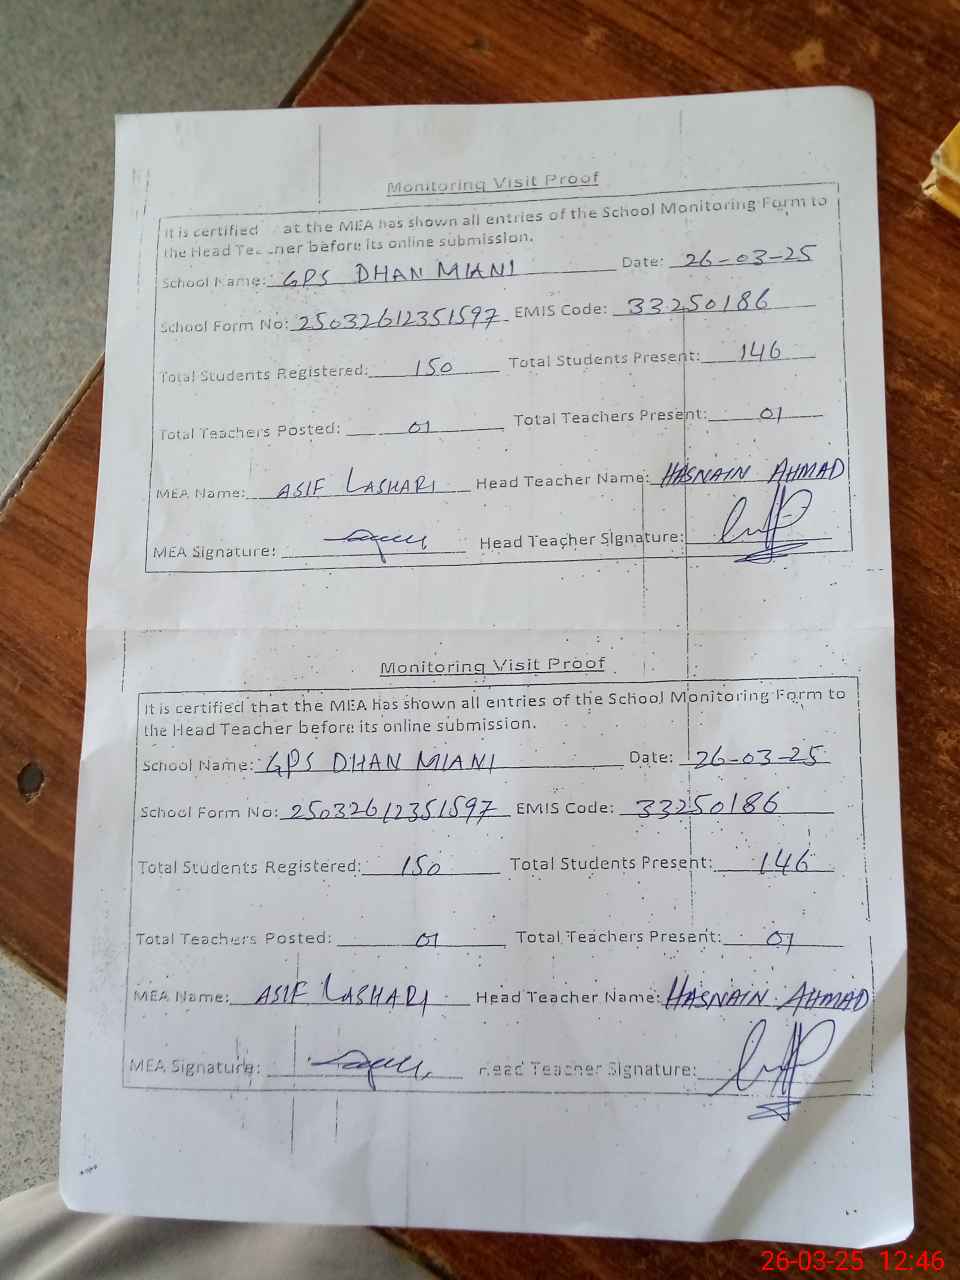 Monitoring Visit Proof
It is certified at the MEA has shown all entries of the School Monitoring Form to
the Head Te ner before its online submission.
School Name: GPS DHAN MIANI Date: 26-03-25
School Form No: 25032612351597 EMIS Code: 33250186
Total Students Registered: 150 Total Students Present: 146
Total Teachers Posted: 01 Total Teachers Present: 01
MEA Name: ASIF LASHARI Head Teacher Name: HASNAIN AHMAD
MEA Signature: Head Teacher Signature:
Monitoring Visit Proof
It is certified that the MEA has shown all entries of the School Monitoring Form to
the Head Teacher before its online submission.
School Name: GPS DHAN MIANI Date: 26-03-25
School Form No: 25032612351597 EMIS Code: 33250186
Total Students Registered: 150 Total Students Present: 146
Total Teachers Posted: 01 Total Teachers Present: 01
MEA Name: ASIF LASHARI Head Teacher Name: HASNAIN AHMAD
MEA Signature: Head Teacher Signature:
26-03-25 12:46